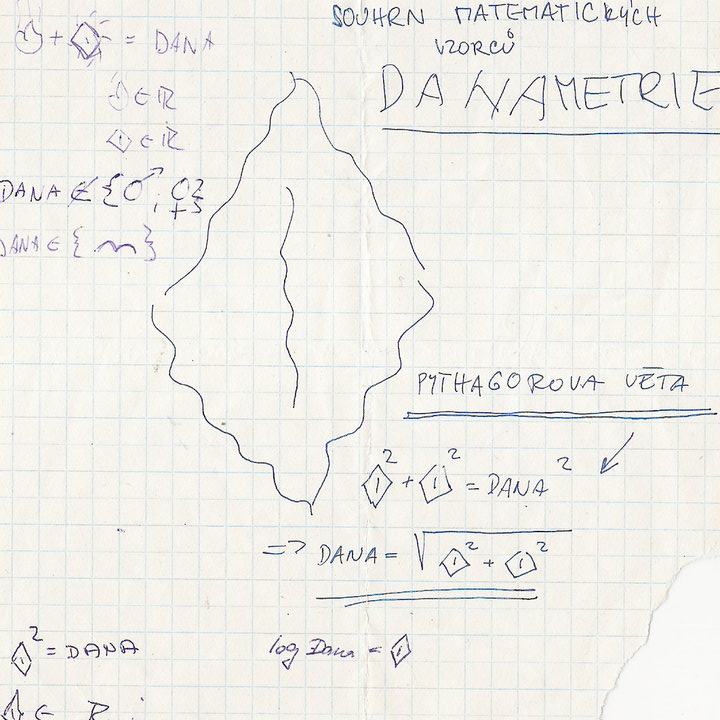 SOUHRN MATEMATICKÝCH
VZORCŮ
DANAMETRIE
+ = DANA
∈ R
∈ R
DANA ∉ {♂, ♀}
DANA ∈ { }
PYTHAGOROVA VĚTA
² + ² = DANA²
=> DANA = √ ² + ²
² = DANA
log Dana =
∈ R